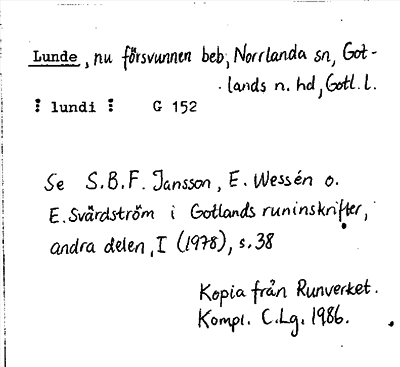 Lunde, nu försvunnen beb, Norrlanda sn, Got-
lands n. hd, Gotl. l.
⁝ lundi ⁝ G 152
Se S.B.F. Jansson, E. Wessén o.
E. Svärdström i Gotlands runinskrifter,
andra delen, I (1978), s. 38
Kopia från Runverket.
Kompl. C.Lg. 1986.